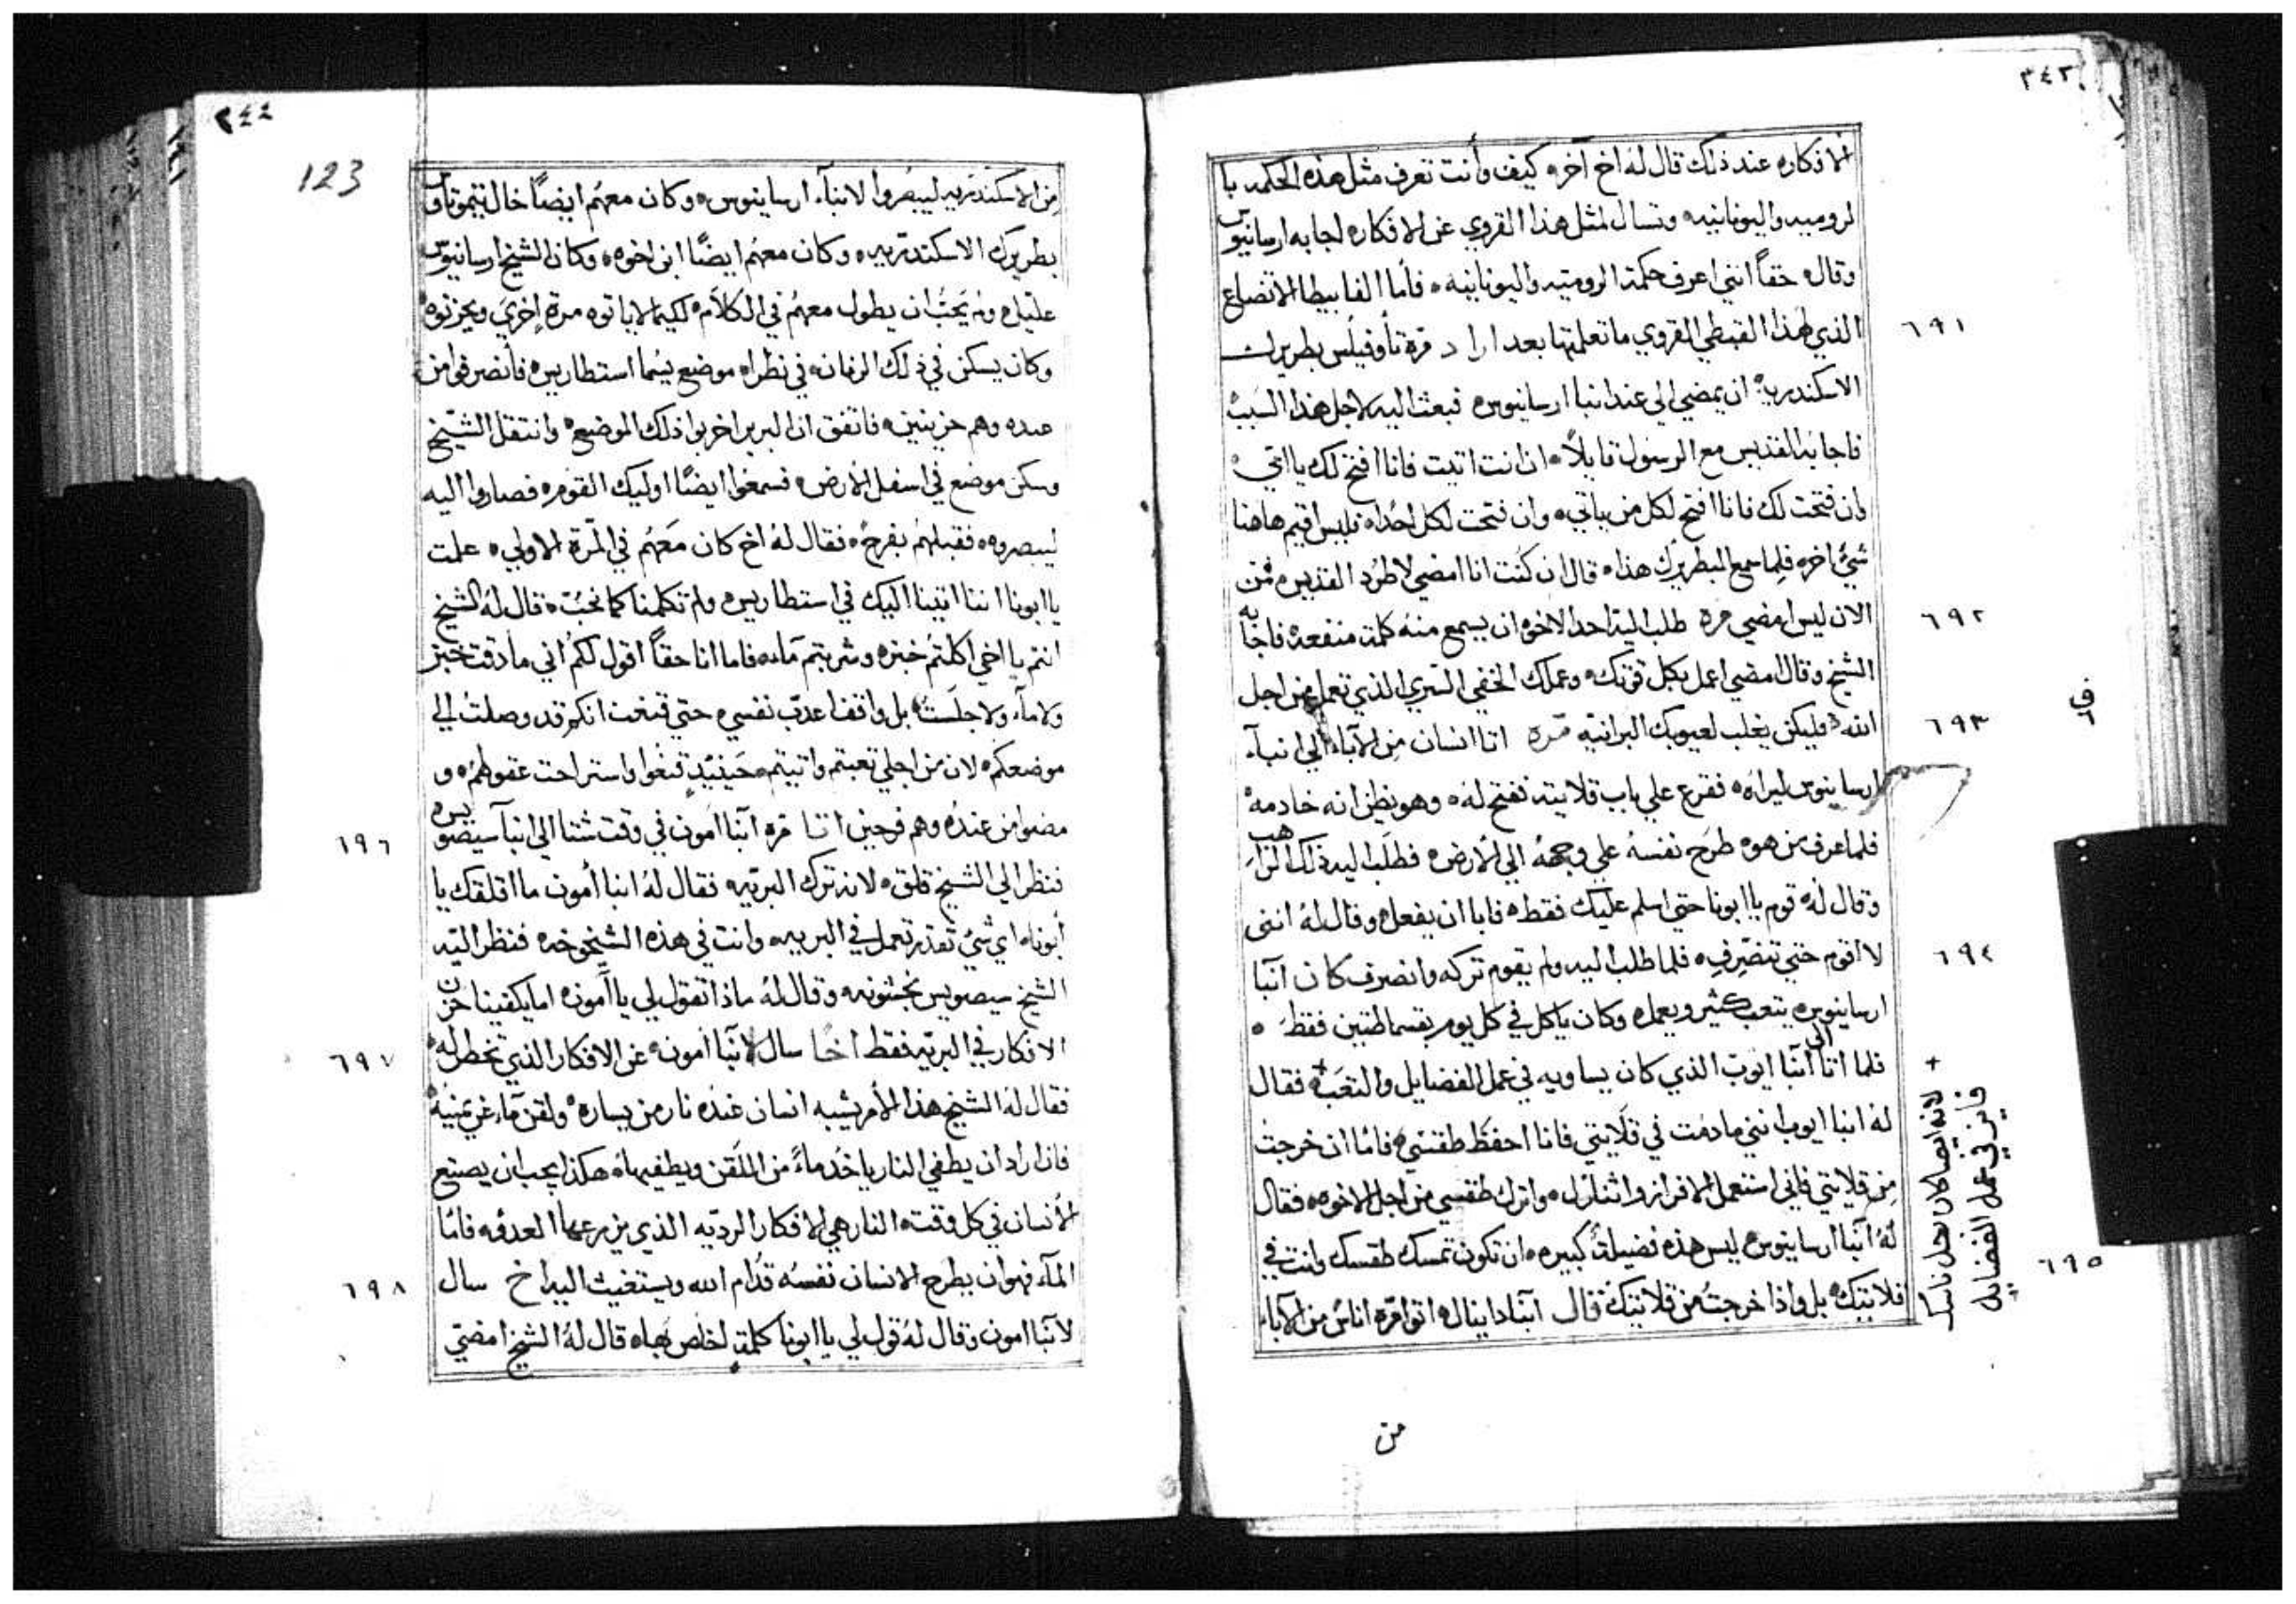 ٣٤٣
الافكار ه عند ذلك قال له اخ آخر ه كيف وأنت تعرف مثل هذه الحكمه با
لروميه واليونانيه ه وتسال لمثل هذا القروي عن الافكار ه اجابه ارسانيوس
وقال ه حقاً انني اعرف حكمة الروميه واليونانيه ه فأما الفابيطا الاتضاع
الذي لهذا القبطي القروي ما تعلمتها بعد اراد مرة تأوفيلس بطريرك
٦٩١
الاسكندريه ان يمضي الي عند انبا ارسانيوس ه فبعث اليه لاجل هذا السبب
فاجابه القديس مع الرسول قايلاً ه ان انت اتيت فانا افتح لك يا اخي ه
وان فتحت لك فانا افتح لكل من ياتي ه وان فتحت لكل احد ه فليس اقيم هاهنا
شيً اخر ه فلما سمع البطريرك هذا ه قال ان كنت انا امضي لاطرد القديس ه فمن
الان ليس امضي مرة طلب اليه احد الاخوه ان يسمع منه كلمة منفعه ه فاجابه
٦٩٢
الشيخ وقال امضي اعمل بكل قوتك ه وعملك الخفي السري الذي تعمله من اجل
الله ه فليكن يغلب لعيوبك البرانيه مرة اتا انسان من الآباء الي انبآ
٦٩٣
ارسانيوس ليراه ه فقرع علي باب قلايته ففتح له ه وهو يظن انه خادمه ه
فلما عرف من هو ه طرح نفسه علي وجهه الي الارض ه فطلب اليه ذلك الراهب
وقال له قوم يا ابونا حتي اسلم عليك فقط ه فابا ان يفعل ه وقال له انني
لا اقوم حتي تنصرف ه فلما طلب اليه ولم يقوم تركه وانصرف كان آنبا
٦٩٤
ارسانيوس ه يتعب كثير ويعمل ه وكان ياكل في كل يوم بقسماطتين فقط ه
فلما اتا الى أنبا ايوب الذي كان يساويه في عمل الفضايل والتعب + ه فقال
له انبا ايوب انني ما دمت في قلايتي فانا احفظ طقسي ه فاما ان خرجت
من قلايتي فاني استعمل الافراز واتنازل ه واترك طقسي من اجل الاخوه ه فقال
له آنبا ارسانيوس ه ليس هذه فضيلة كبيره ه ان تكون تمسك طقسك وانت في
قلايتك ه بل واذا خرجت من قلايتك قال آنبا دانيال ه اتوا مرة اناس من الآباء
٦٩٥
+ لانه ايضا كان رجل ناسك
فاين في عمل الفضايل
من
٣٤٤
123
من الاسكندريه ليبصروا لانبآ ارسانيوس ه وكان معهم ايضاً خال تيموتاوس
بطريرك الاسكندريه ه وكان معهم ايضاً ابن اخوه ه وكان الشيخ ارسانيوس
عليل ه ولم يحب ان يطول معهم في الكلام ه لكيما لا ياتوه مرة اخري ويحزنوه ه
وكان يسكن في ذلك الزمان ه في نظراه موضع يسما استطاريس ه فأنصرفوا من
عنده وهم حزينين ه فاتفق ان البربر اخربوا ذلك الموضع ه وانتقل الشيخ
وسكن موضع في اسفل الارض ه فسمعوا ايضاً اوليك القوم ه فصاروا اليه
ليبصروه ه فقبلهم بفرح ه فقال له اخ كان معهم في المرة الاولي ه علمت
يا ابونا اننا اتينا اليك في استطاريس ه ولم تكلمنا كما نحب ه قال له الشيخ
انتم يا اخي اكلتم خبز ه وشربتم مآء ه فاما انا حقاً اقول لكم اني ما دقت خبز
ولا مآء ولا جلست ه بل واقف اعذب نفسي ه حتي قنعت انكم قد وصلت الي
موضعكم ه لان من اجلي تعبتم واتيتم ه حينيذٍ قنعوا واستراحت عقولهم ه و
مضوا من عنده وهم فرحين اتا مرة آنبا آمون في وقت شتا الي انبا سيصويس ه
٦٩٦
فنظر الي الشيخ قلق ه لانه ترك البريه ه فقال له انبا أمون ما اقلقك يا
أبونا ه اي شيً تقدر تعمل في البريه ه وانت في هذه الشيخوخه ه فنظر اليه
الشيخ سيصويس بخشونه ه وقال له ماذا تقول لي يا آمون ه اما يكفينا حزن
الافكار في البريه فقط اخًا سال لآنبا أمون ه عن الافكار الذي تخطر له ه
٦٩٧
فقال له الشيخ هذا الأمر يشبه انسان عنده نار من يساره ه ولقن مآء عن يمينه ه
فان اراد ان يطفي النار ياخد ماءً من اللقن ويطفيها ه هكذا يجب ان يصنع
الأنسان في كل وقت ه النار هي الافكار الرديه الذي يزرعها العدو ه فاما
المآء فهو ان يطرح الانسان نفسه قدام الله ويستغيث اليه اخ سال
٦٩٨
لآنبا امون وقال له قول لي يا ابونا كلمة لخلص بها ه قال له الشيخ امضي